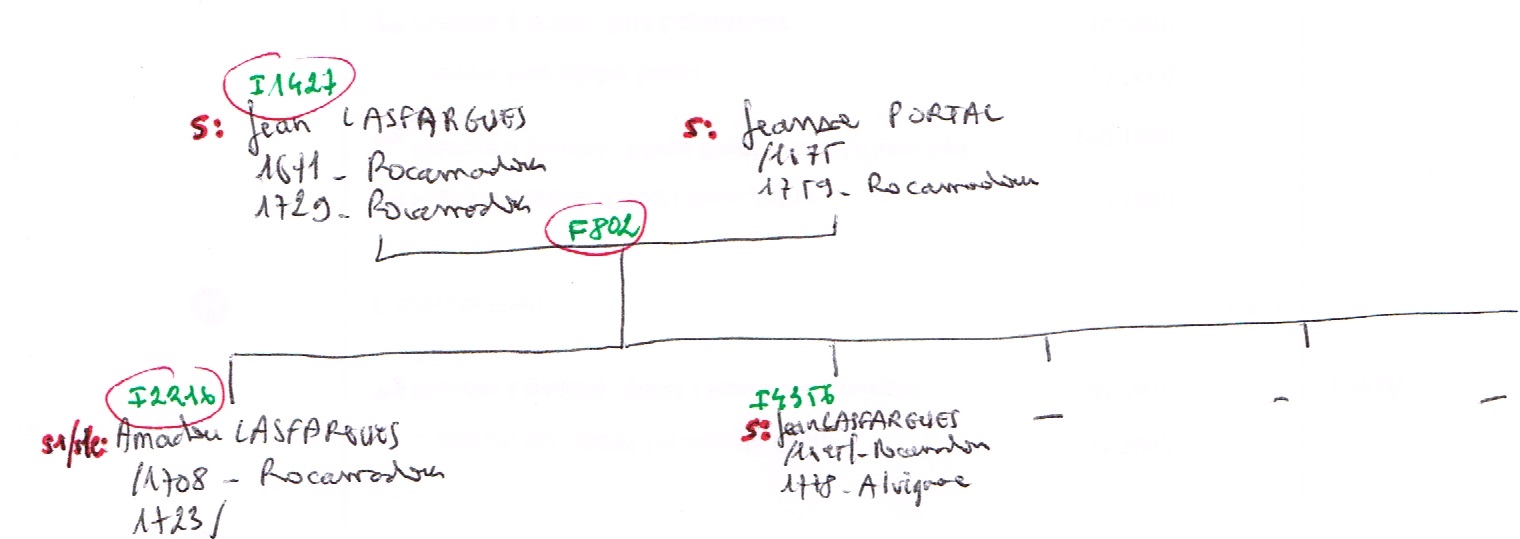 I1427
S: Jean LASFARGUES
1671 - Rocamadour
1729 - Rocamadour
S: Jeanne PORTAL
/1675
1759 - Rocamadour
F802
I2216
Amadou LASFARGUES
/1708 - Rocamadour
1723/
I4356
S: Jean LASFARGUES
Rocamadour
1778 - Alvignac